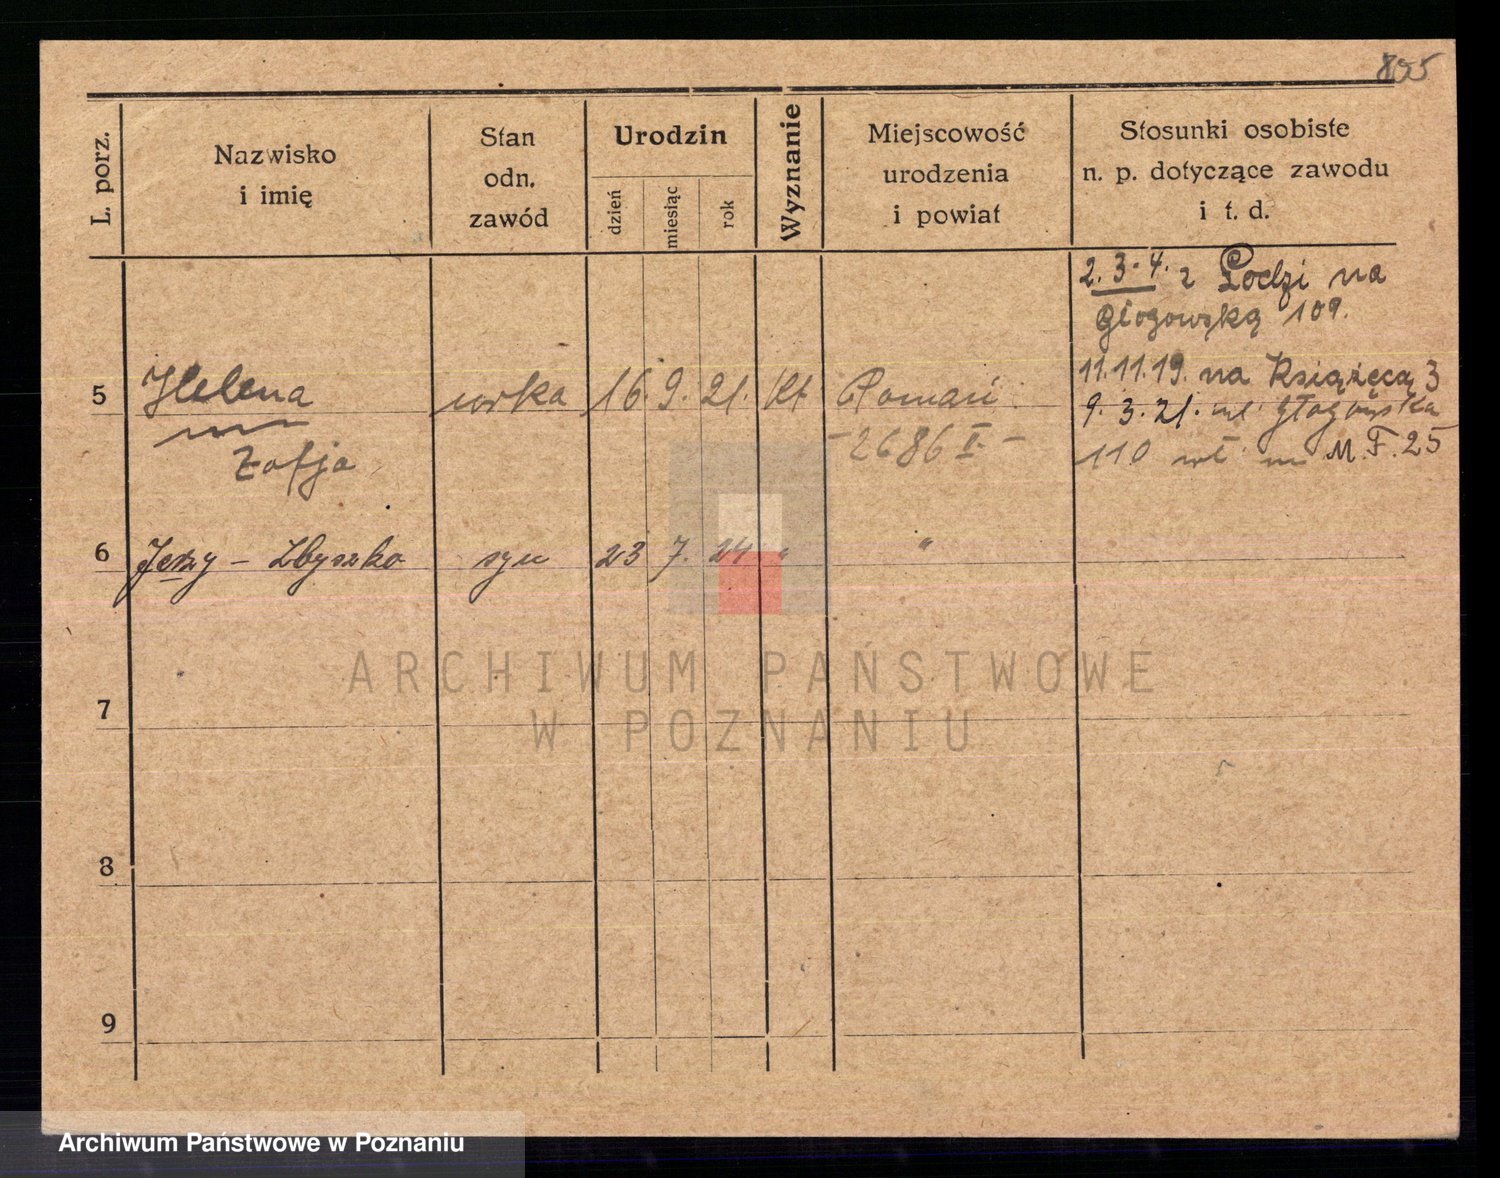 805
L. porz.
Nazwisko
i imię
Stan
odn.
zawód
Urodzin
dzień
miesiąc
rok
Wyznanie
Miejscowość
urodzenia
i powiat
Stosunki osobiste
n. p. dotyczące zawodu
i t. d.
2. 3. 4. z Łodzi na
Głogowską 109.
11.11.19. na Książęcą 3
9. 3. 21. Głogowska
110 M. F. 25
5 Helena córka 16. 9. 21. kt Poznań
- 2686 I -
Zofja
6 Jerzy - Zbyszko syn 23 7. 24 " "
7
8
9
ARCHIWUM PAŃSTWOWE
W POZNANIU
Archiwum Państwowe w Poznaniu